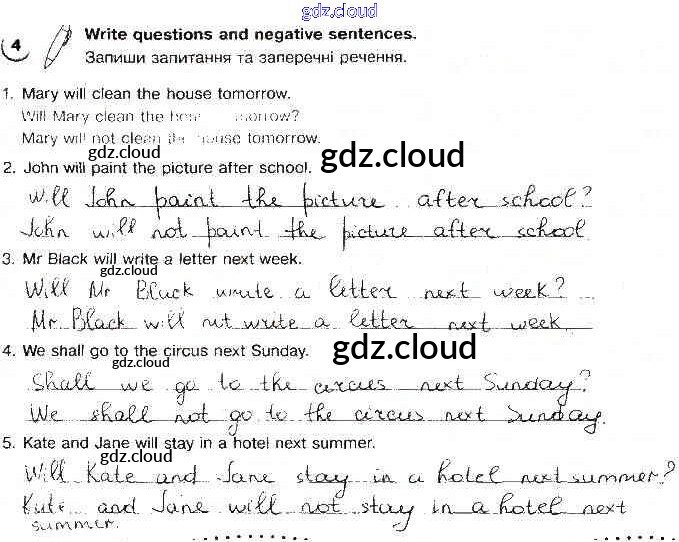 gdz.cloud
4
Write questions and negative sentences.
Запиши запитання та заперечні речення.
1. Mary will clean the house tomorrow.
Will Mary clean the
Mary will not clean the house tomorrow.
gdz.cloud
gdz.cloud
2. John will paint the picture after school.
Will John paint the picture after school?
John will not paint the picture after school.
3. Mr Black will write a letter next week.
gdz.cloud
Will Mr Black write a letter next week?
Mr. Black will not write a letter next week
4. We shall go to the circus next Sunday.
gdz.cloud
gdz.cloud
Shall we go to the circus next Sunday?
We shall not go to the circus next Sunday.
5. Kate and Jane will stay in a hotel next summer.
gdz.cloud
Will Kate and Jane stay in a hotel next summer?
Kate and Jane will not stay in a hotel next
summer.